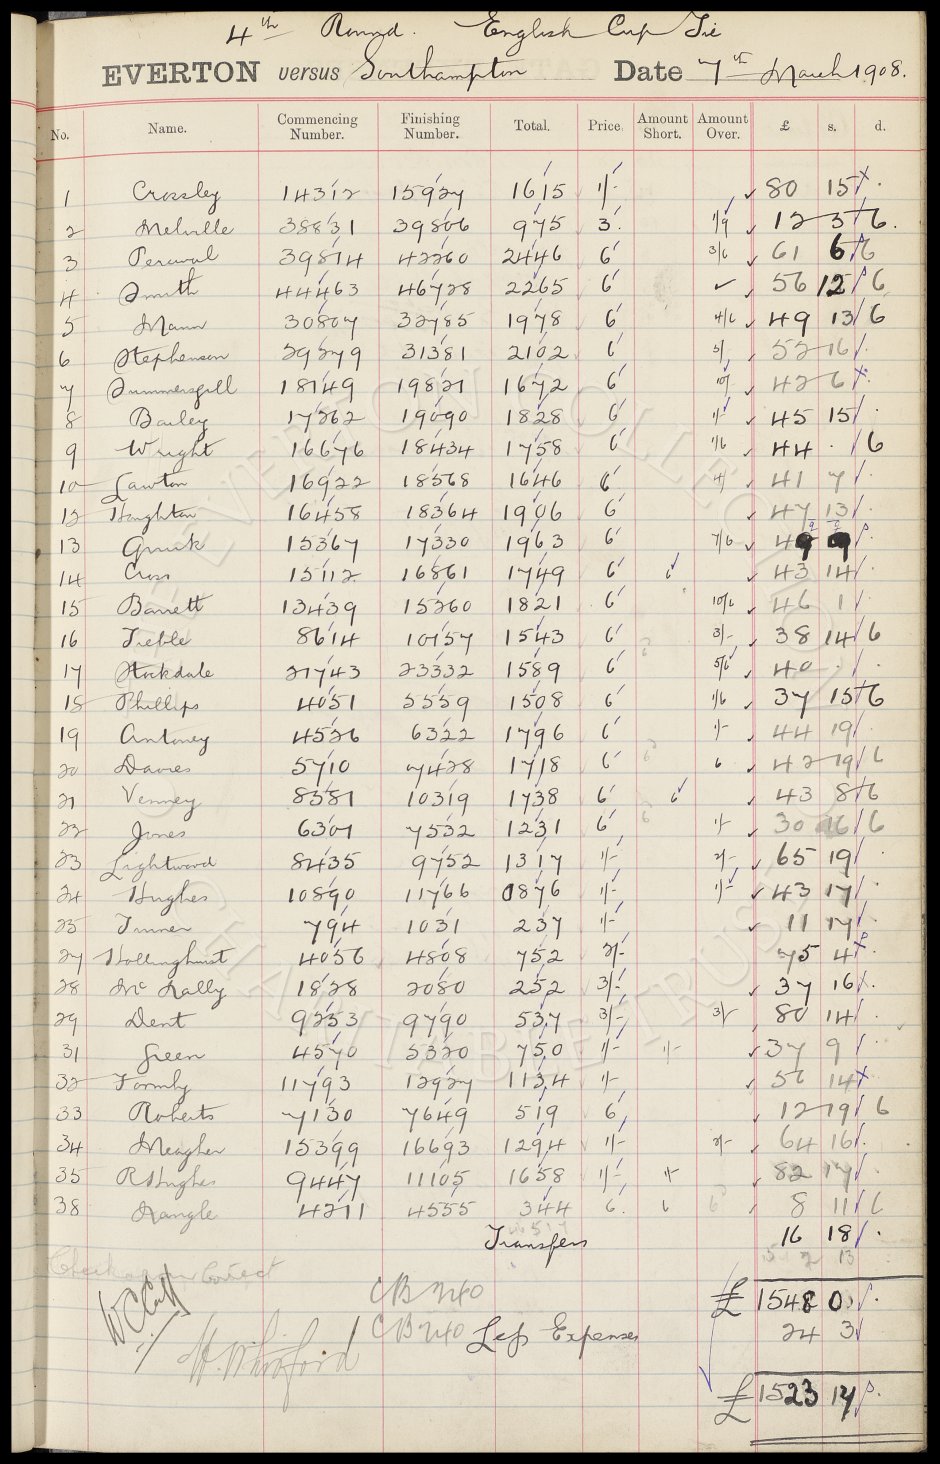 4th Round. English Cup Tie
EVERTON versus Southampton Date 7th March 1908.
No. Name. Commencing Number. Finishing Number. Total. Price. Amount Short. Amount Over. £ s. d.
1 Crossley 14312 15927 1615 1/- 80 15 .
2 Melville 38831 39806 975 3 1/9 12 5 6.
3 Percival 39814 42260 2446 6 3/6 61 6 6
4 Smith 44463 46728 2265 6 56 12 6
5 Mann 30807 32785 1978 6 4/6 49 13 6
6 Stephenson 29279 31381 2102 6 5/ 52 16 .
7 Summersgill 18149 19821 1672 6 10/ 42 6 .
8 Bailey 17262 19090 1828 6 1/- 45 15 .
9 Wright 16676 18434 1758 6 1/6 44 . 6
10 Lawton 16922 18568 1646 6 4/ 41 7 .
12 Houghton 16458 18364 1906 6 47 13 .
13 15367 17330 1963 6 7/6 49 9 .
14 Cross 15112 16861 1749 6 6 43 14 .
15 Barrett 13439 15260 1821 6 10/6 46 1 .
16 8614 10157 1543 6 3/- 38 14 6
17 Stockdale 21743 23332 1589 6 5/6 40 . .
18 Phillips 4051 5559 1508 6 1/6 37 15 6
19 Antoney 4526 6322 1796 6 1/- 44 19 .
20 Davies 5710 7428 1718 6 6 42 19 6
21 Venney 8581 10319 1738 6 6 43 8 6
22 Jones 6301 7532 1231 6 1/- 30 16 6
23 Lightwood 8435 9752 1317 1/- 2/- 65 19 .
24 Hughes 10890 11766 0876 1/- 1/- 43 17 .
25 Turner 794 1031 237 1/- 11 17
27 Hollinghurst 4056 4808 752 2/- 75 4 .
28 Mc Nally 1828 2080 252 3/- 37 16 .
29 Dent 9253 9790 537 3/- 3/- 80 14 .
31 Green 4570 5320 750 1/- 1/- 37 9 .
32 Formby 11793 12927 1134 1/- 56 14
33 Roberts 7130 7649 519 6 12 19 6
34 Meagher 15399 16693 1294 1/- 2/- 64 16 .
35 R Hughes 9447 11105 1658 1/- 1/- 82 17
38 Nangle 4211 4555 344 6. 6 6 8 11 6
Transfers 16 18 .
Check again Correct
CB 240 £ 1548 0 .
CB 240 Less Expenses 24 3
£ 1523 17 .